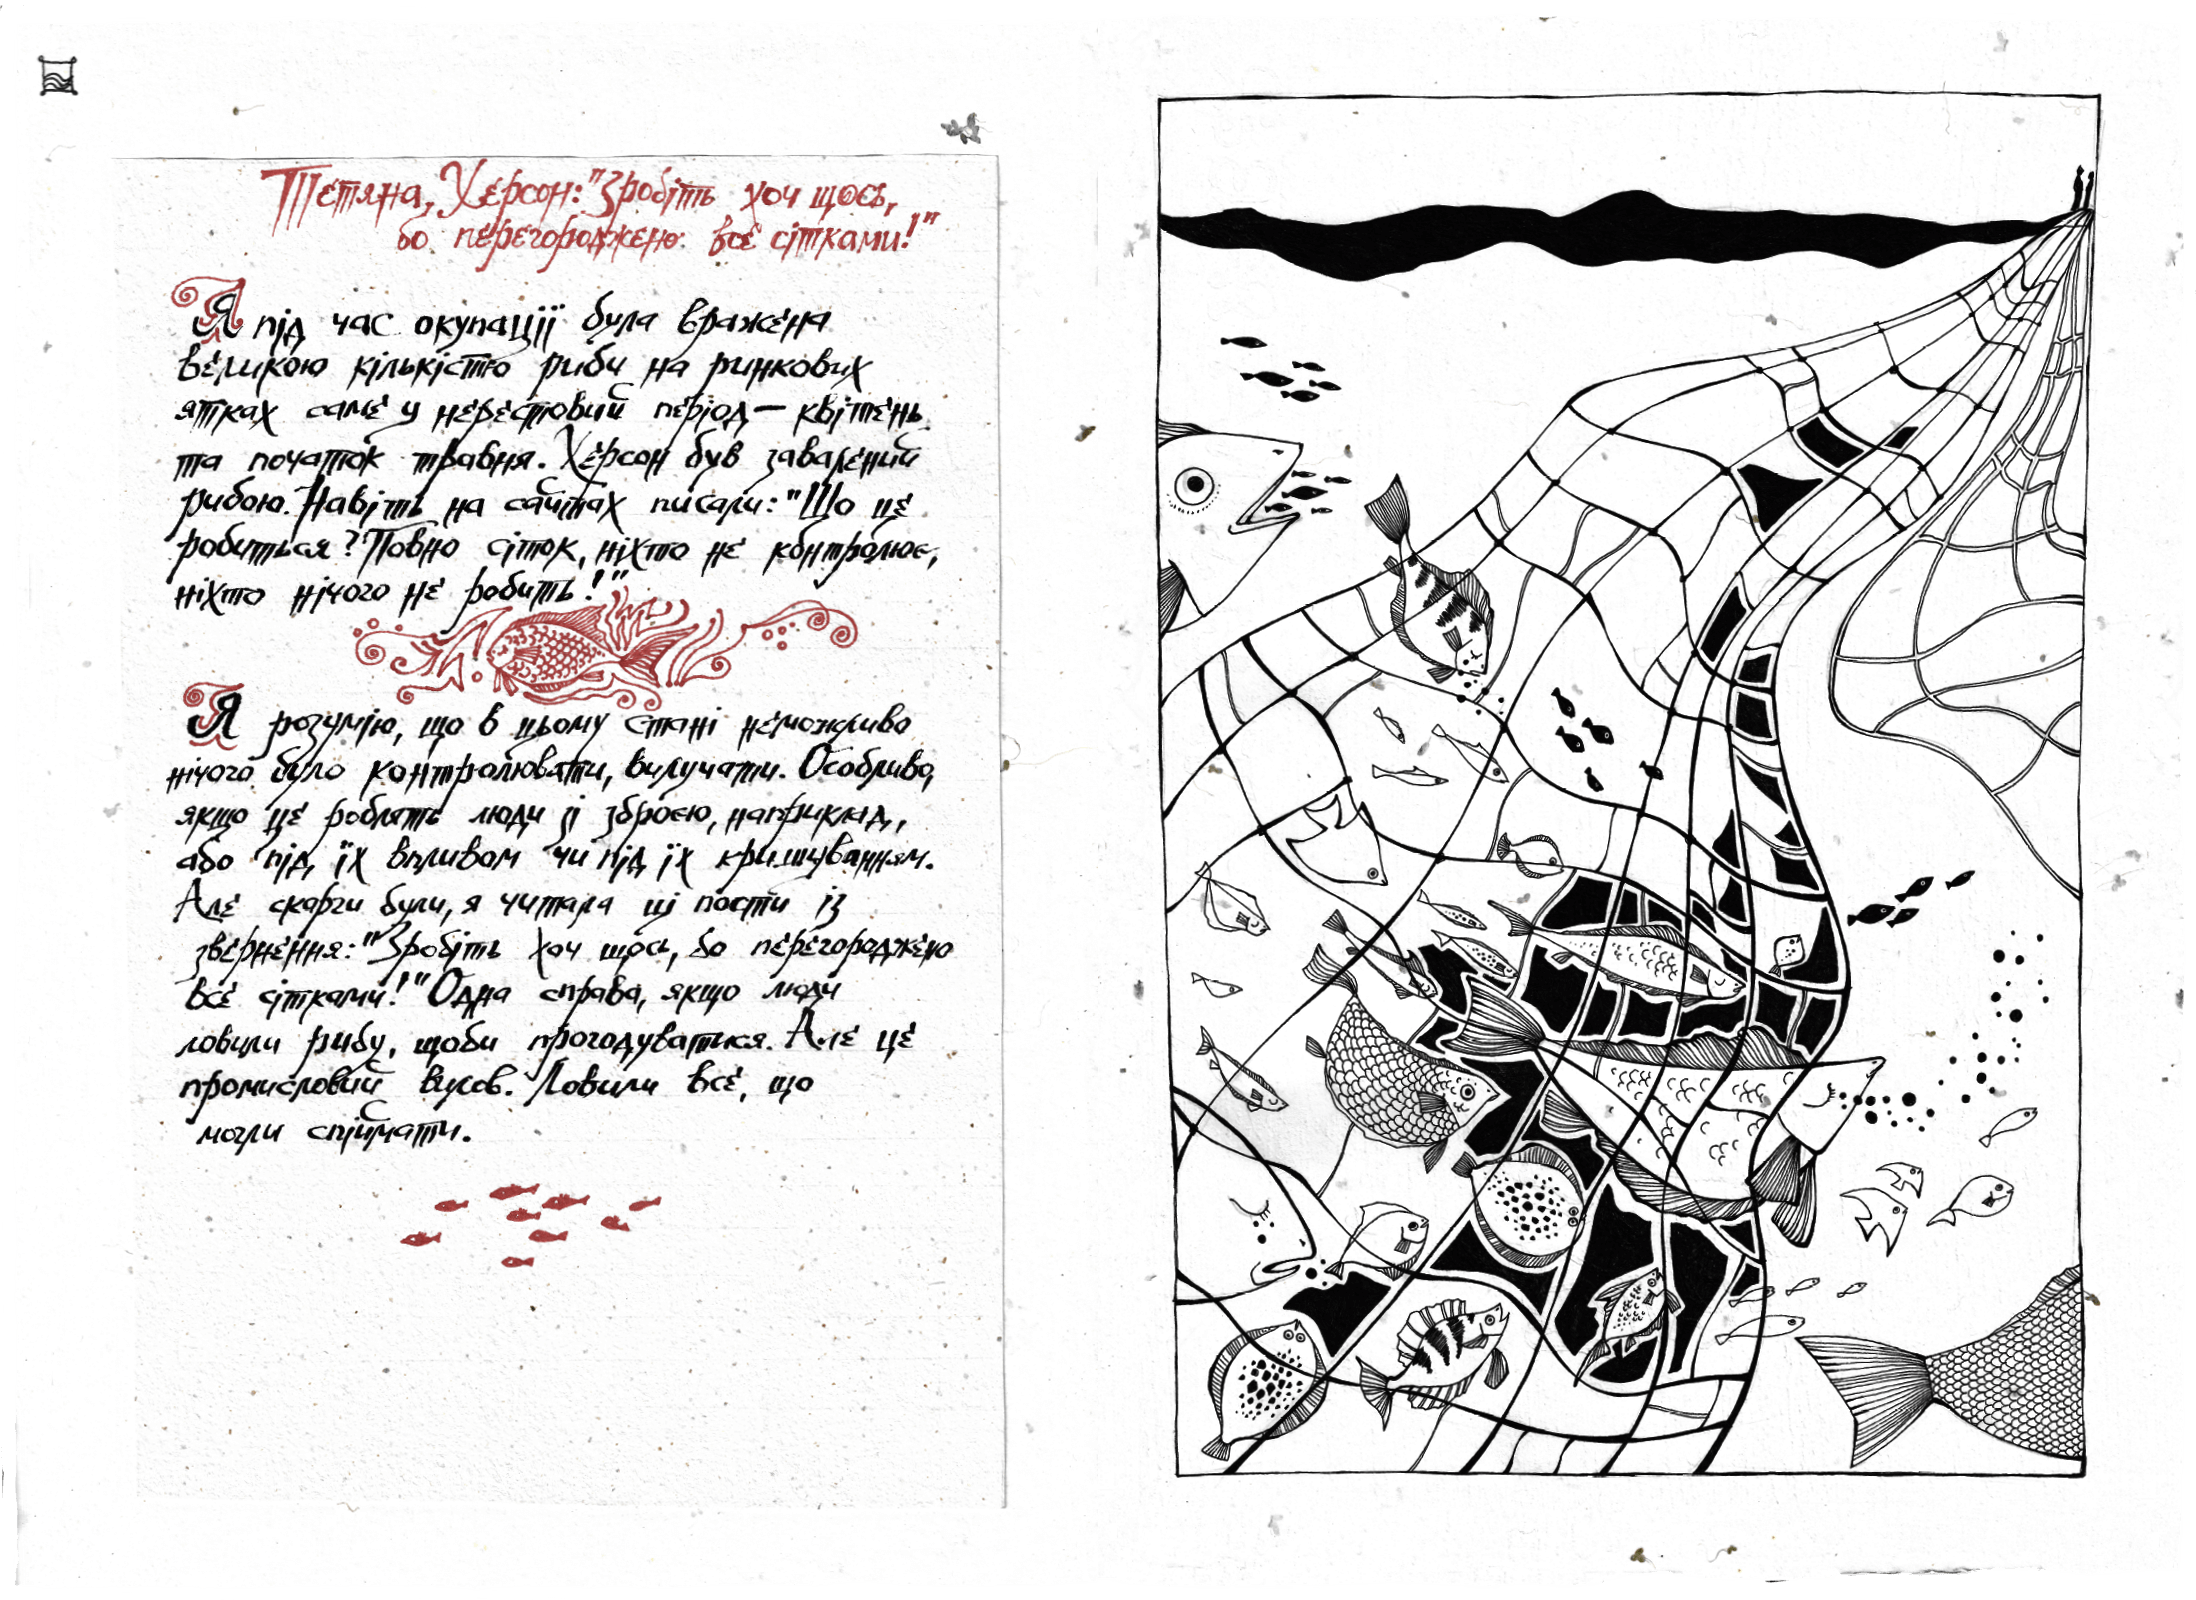 Тетяна, Херсон: "Зробіть хоч щось,
бо перегороджено все сітками!"
Я під час окупації була вражена
великою кількістю риби на ринкових
ятках саме у нерестовий період — квітень
та початок травня. Херсон був завалений
рибою. Навіть на сайтах писали: "Що це
робиться? Повно сіток, ніхто не контролює,
ніхто нічого не робить!"
Я розумію, що в цьому стані неможливо
нічого було контролювати, вилучати. Особливо,
якщо це роблять люди зі зброєю, наприклад,
або під їх впливом чи під їх кришуванням.
Але скарги були, я читала ці пости із
звернення: "Зробіть хоч щось, бо перегороджено
все сітками!" Одна справа, якщо люди
ловили рибу, щоби прогодуватися. Але це
промисловий вилов. Ловили все, що
могли спіймати.